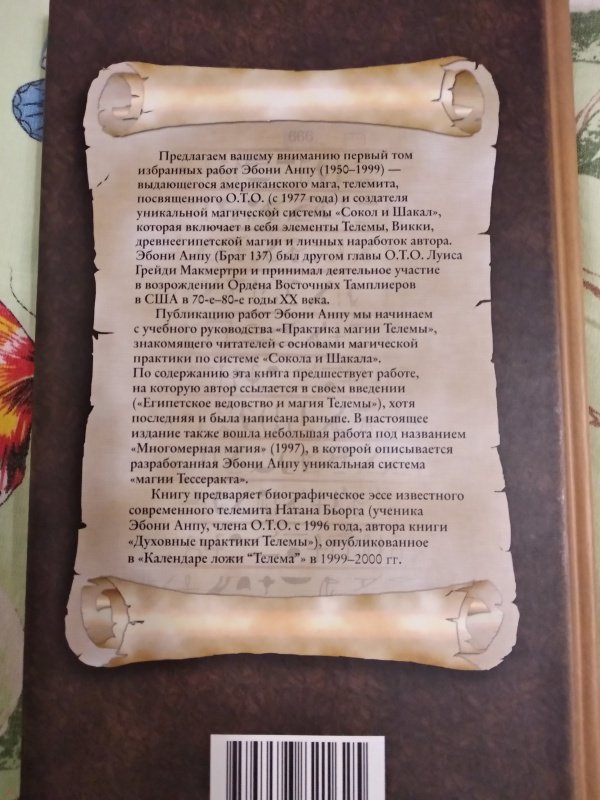 666
Предлагаем вашему вниманию первый том
избранных работ Эбони Анпу (1950–1999) —
выдающегося американского мага, телемита,
посвященного О.Т.О. (с 1977 года) и создателя
уникальной магической системы «Сокол и Шакал»,
которая включает в себя элементы Телемы, Викки,
древнеегипетской магии и личных наработок автора.
Эбони Анпу (Брат 137) был другом главы О.Т.О. Луиса
Грейди Макмертри и принимал деятельное участие
в возрождении Ордена Восточных Тамплиеров
в США в 70-е–80-е годы XX века.
Публикацию работ Эбони Анпу мы начинаем
с учебного руководства «Практика магии Телемы»,
знакомящего читателей с основами магической
практики по системе «Сокола и Шакала».
По содержанию эта книга предшествует работе,
на которую автор ссылается в своем введении
(«Египетское ведовство и магия Телемы»), хотя
последняя и была написана раньше. В настоящее
издание также вошла небольшая работа под названием
«Многомерная магия» (1997), в которой описывается
разработанная Эбони Анпу уникальная система
«магии Тессеракта».
Книгу предваряет биографическое эссе известного
современного телемита Натана Бьорга (ученика
Эбони Анпу, члена О.Т.О. с 1996 года, автора книги
«Духовные практики Телемы»), опубликованное
в «Календаре ложи “Телема”» в 1999–2000 гг.